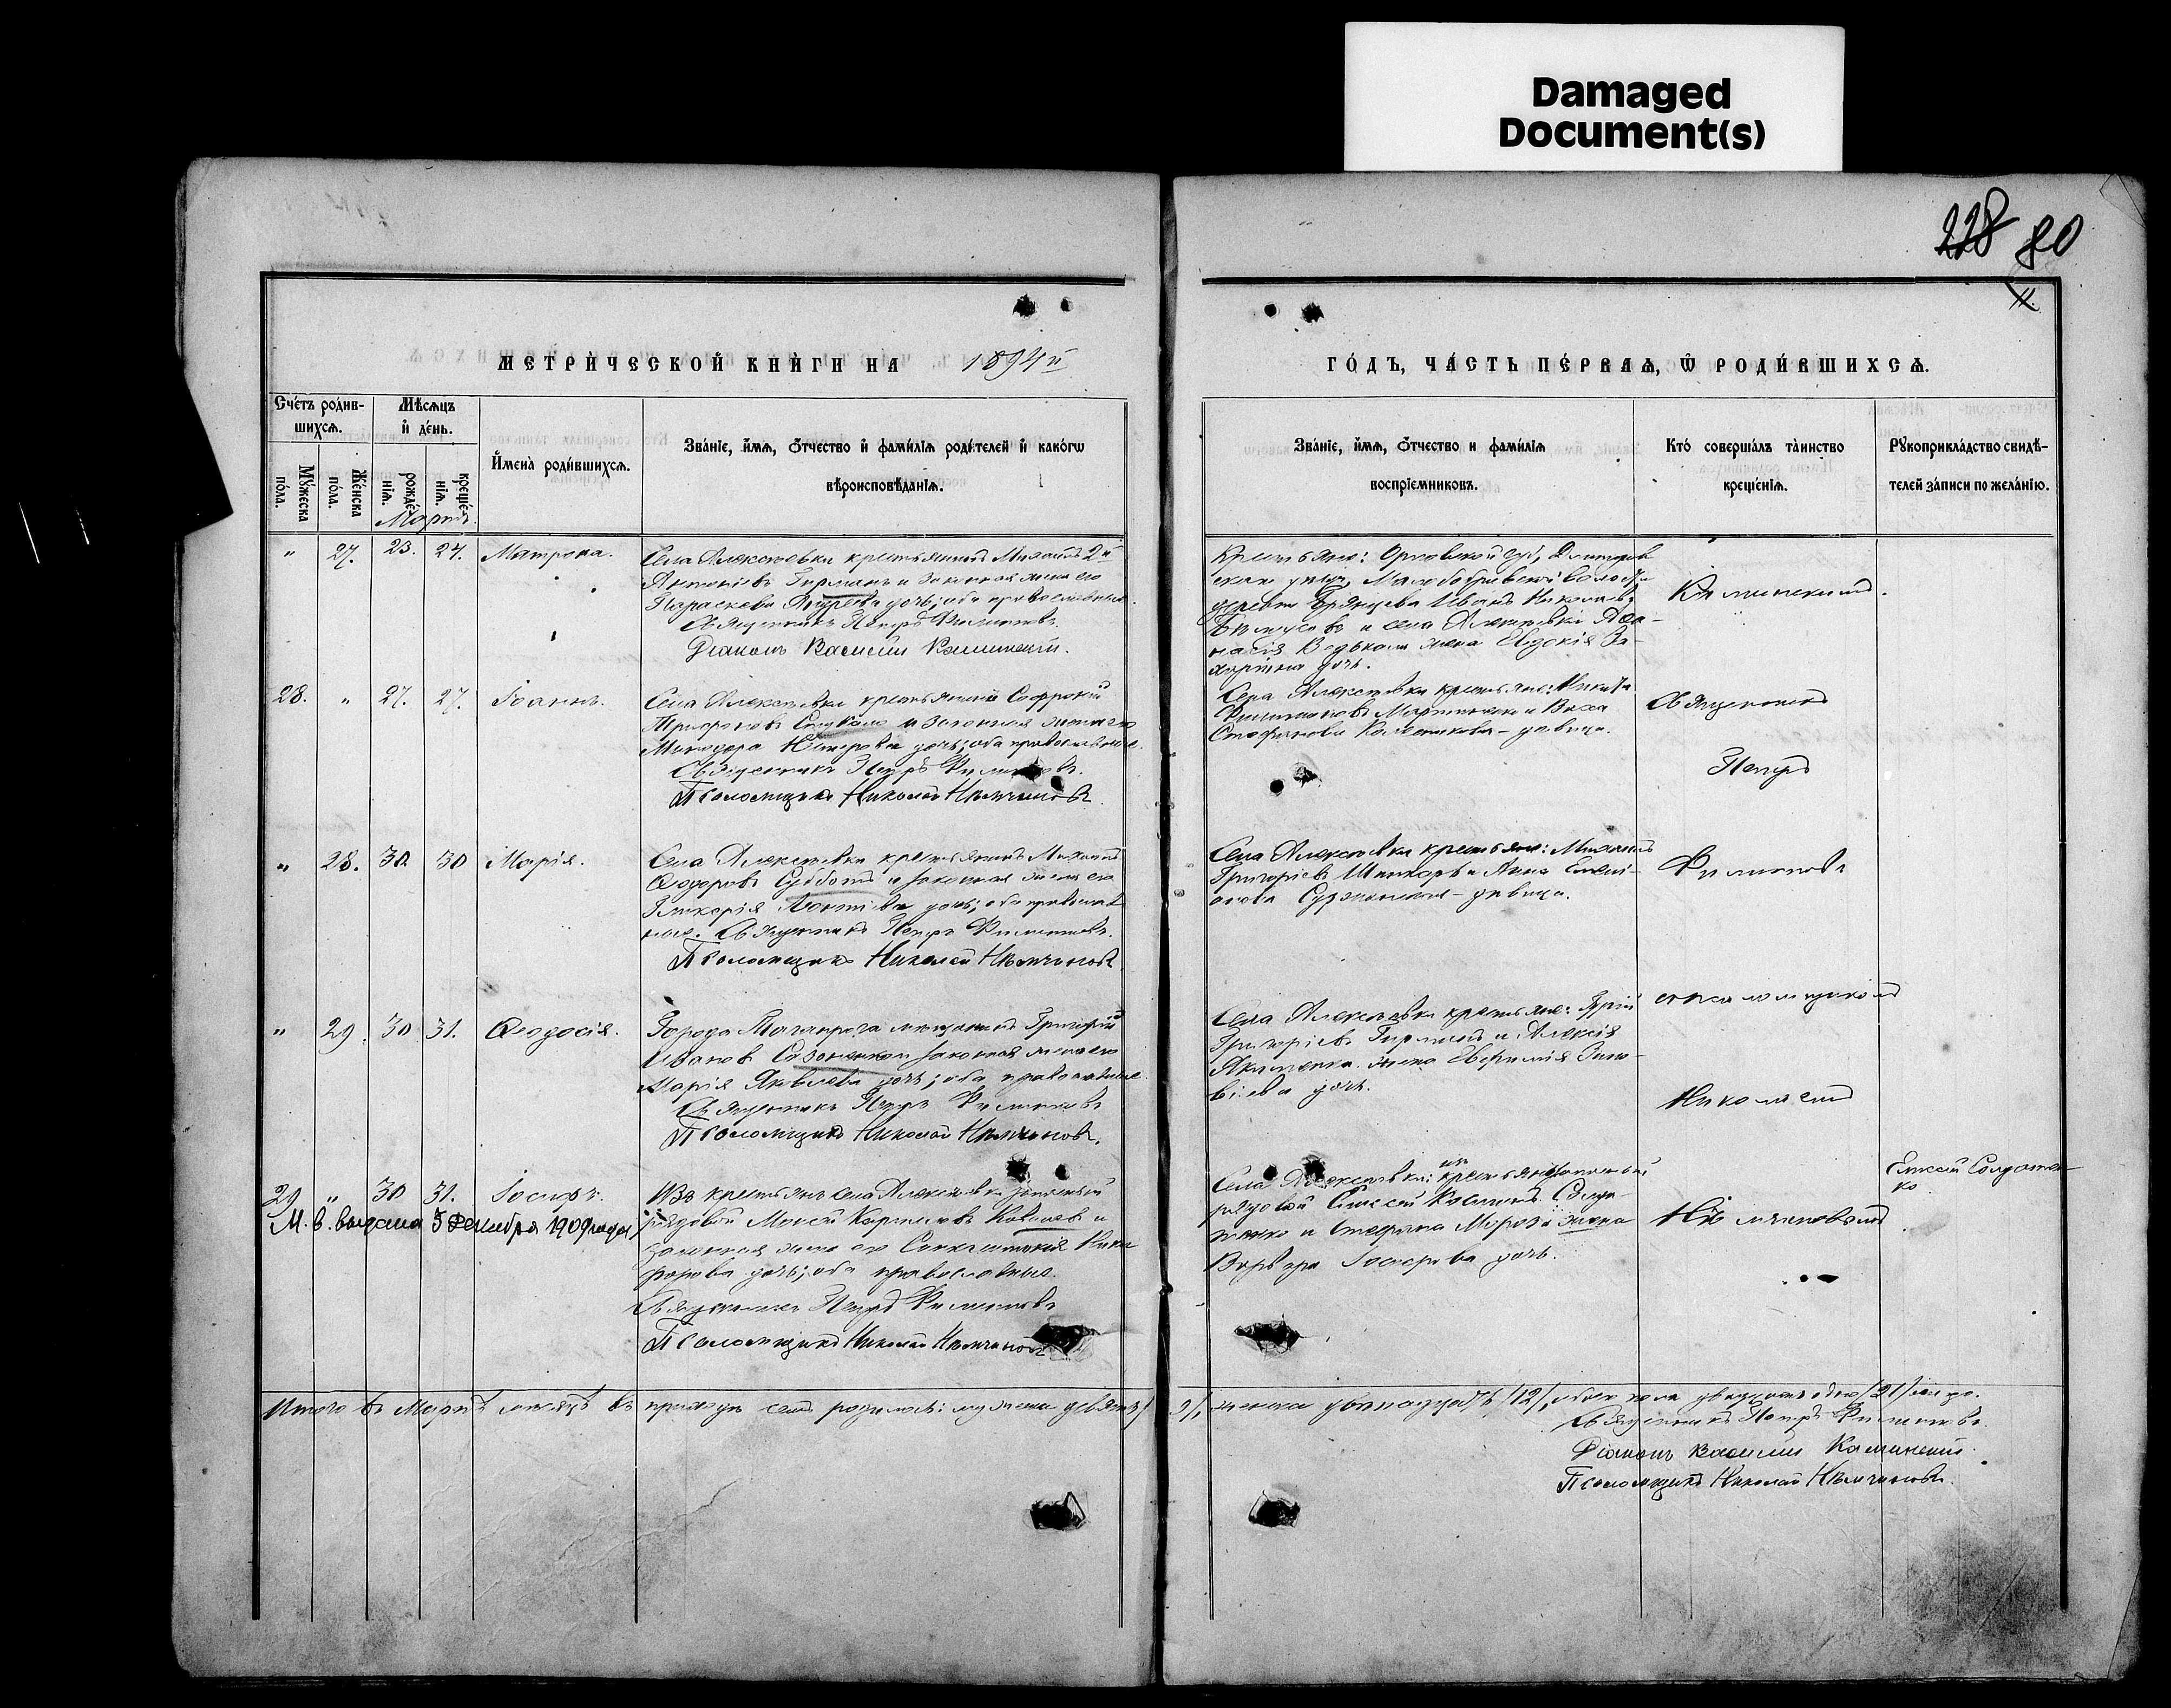 Damaged
Document(s)
228 80
МЕТРИЧЕСКОЙ КНИГИ НА 1894й
ГОДЪ, ЧАСТЬ ПЕРВАѦ, Ѿ РОДИВШИХСѦ.
Счетъ родив-
шихсѧ.
Мужеска
пола.
Женска
пола.
Мѣсѧцъ
и день.
рожде-
ніѧ.
креще-
ніѧ.
Мартъ.
Имена родившихсѧ.
Званіе, имѧ, Отчество и фамиліѧ родителей и какогѡ
вѣроисповѣданіѧ.
Званіе, имѧ, Отчество и фамиліѧ
воспріемниковъ.
Кто совершалъ таинство
крещеніѧ.
Рукоприкладство свидѣ-
телей записи по желанію.
" 27. 23. 27. Матрона.
Села Алексѣевки крестьянинъ Михаилъ 2й
Антоніевъ Гирманъ и законная жена его
Параскева Андреева дочь; оба православные.
Священникъ Петръ Филипповъ.
Діаконъ Василій Калинскій.
Крестьяне: Орловской губ., Дмитров
скаго уѣзда, волости
деревни Иванъ Николаевъ
и села Алексѣевки
жена Евдокія За-
харіина дочь.
28. " 27. 27. Іоаннъ.
Села Алексѣевки крестьянинъ Софроній
и законная жена его
Минодора Петрова дочь; оба православные.
Священникъ Петръ Филипповъ.
Псаломщикъ Николай Нѣмчиновъ.
Села Алексѣевки крестьяне: Никита
Мартыненко и Васса
Стефанова - дѣвица.
Священникъ
Петръ
" 28. 30 30 Марія.
Села Алексѣевки крестьянинъ Михаилъ
Ѳеодоровъ Субботъ и законная жена его
Гликерія Леонтіева дочь; оба православ
ные. Священникъ Петръ Филипповъ.
Псаломщикъ Николай Нѣмчиновъ.
Села Алексѣевки крестьяне: Михаилъ
Григоріевъ и Анна
- дѣвица.
Филипповъ
" 29. 30 31. Ѳеодосія.
Города Таганрога мѣщанинъ Григорій
Ивановъ и законная жена его
Марія Яковлева дочь; оба православные.
Священникъ Петръ Филипповъ
Псаломщикъ Николай Нѣмчиновъ.
Села Алексѣевки крестьяне: Гурій
Григоріевъ Гирманъ и Алексія
Якименка жена Евфимія Зино-
віева дочь.
съ псаломщикомъ
Николаемъ
29 " 30 31. Іосифъ.
М. в. выдана 5 Декабря 1909 года
Изъ крестьянъ села Алексѣевки запасный
рядовой Моисей Карповъ Ковалевъ и
законная жена его Синклитикія Ники
форова дочь; оба православные.
Священникъ Петръ Филипповъ
Псаломщикъ Николай Нѣмчиновъ
Села Алексѣевки: изъ крестьянъ запасный
рядовой Елисей Солда-
тенко и Стефана Мороза жена
Варвара Іосифова дочь.
Нѣмчиновымъ
Елисей Солдатен-
ко
Итого въ Мартѣ мѣсяцѣ въ приходѣ семъ родилось: мужеска девять /
9/, женска двѣнадцать /12/, обоего пола двадцать одно /21/ лицо.
Священникъ Петръ Филипповъ.
Діаконъ Василій Калинскій.
Псаломщикъ Николай Нѣмчиновъ.